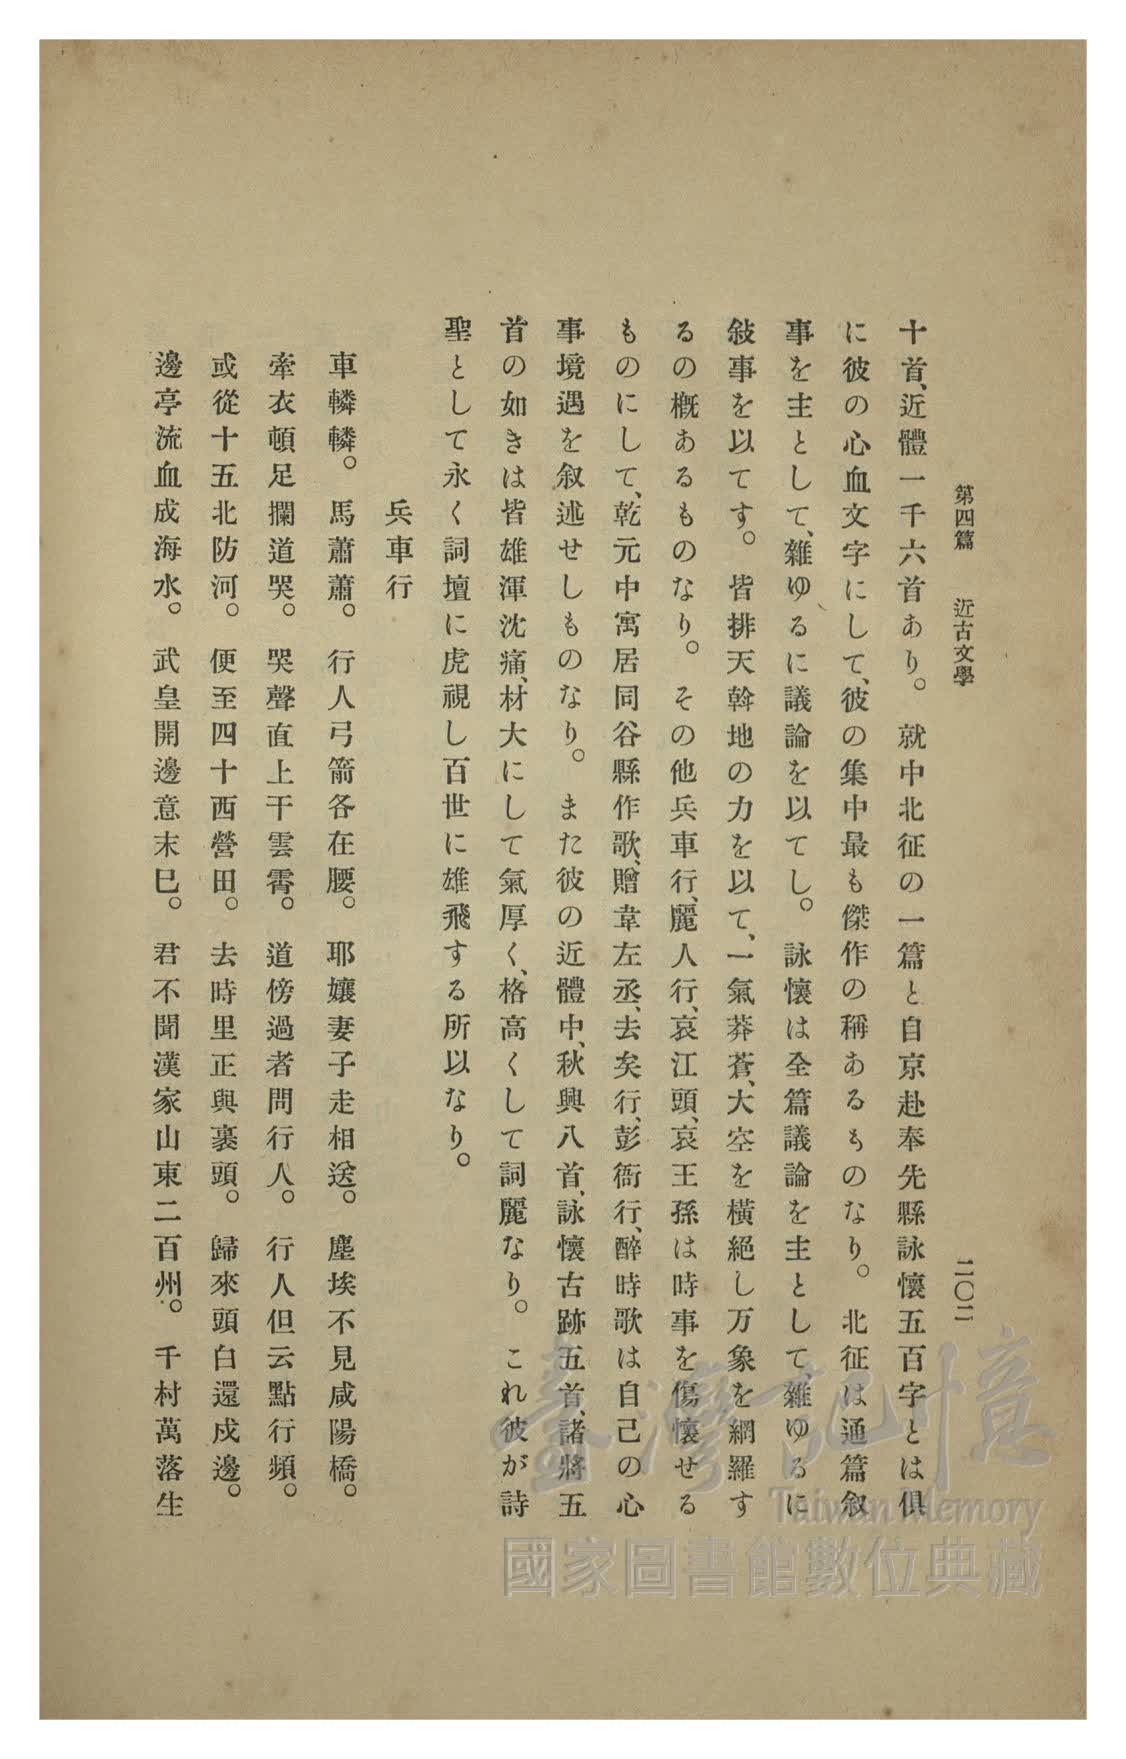 第四篇　近古文學　二〇二
十首、近體一千六首あり。就中北征の一篇と自京赴奉先縣詠懷五百字とは俱
に彼の心血文字にして、彼の集中最も傑作の稱あるものなり。北征は通篇叙
事を主として、雜ゆるに議論を以てし。詠懷は全篇議論を主として、雜ゆるに
敍事を以てす。皆排天斡地の力を以て、一氣莽蒼、大空を橫絕し万象を網羅す
るの槪あるものなり。その他兵車行、麗人行、哀江頭、哀王孫は時事を傷懷せる
ものにして、乾元中寓居同谷縣作歌、贈韋左丞、去矣行、彭衙行、醉時歌は自己の心
事境遇を叙述せしものなり。また彼の近體中、秋興八首、詠懷古跡五首、諸將五
首の如きは皆雄渾沈痛、材大にして氣厚く、格高くして詞麗なり。これ彼が詩
聖として永く詞壇に虎視し百世に雄飛する所以なり。
兵車行
車轔轔。馬蕭蕭。行人弓箭各在腰。耶孃妻子走相送。塵埃不見咸陽橋。
牽衣頓足攔道哭。哭聲直上干雲霄。道傍過者問行人。行人但云點行頻。
或從十五北防河。便至四十西營田。去時里正與裹頭。歸來頭白還戍邊。
邊亭流血成海水。武皇開邊意未已。君不聞漢家山東二百州。千村萬落生
臺灣記憶
Taiwan Memory
國家圖書館數位典藏